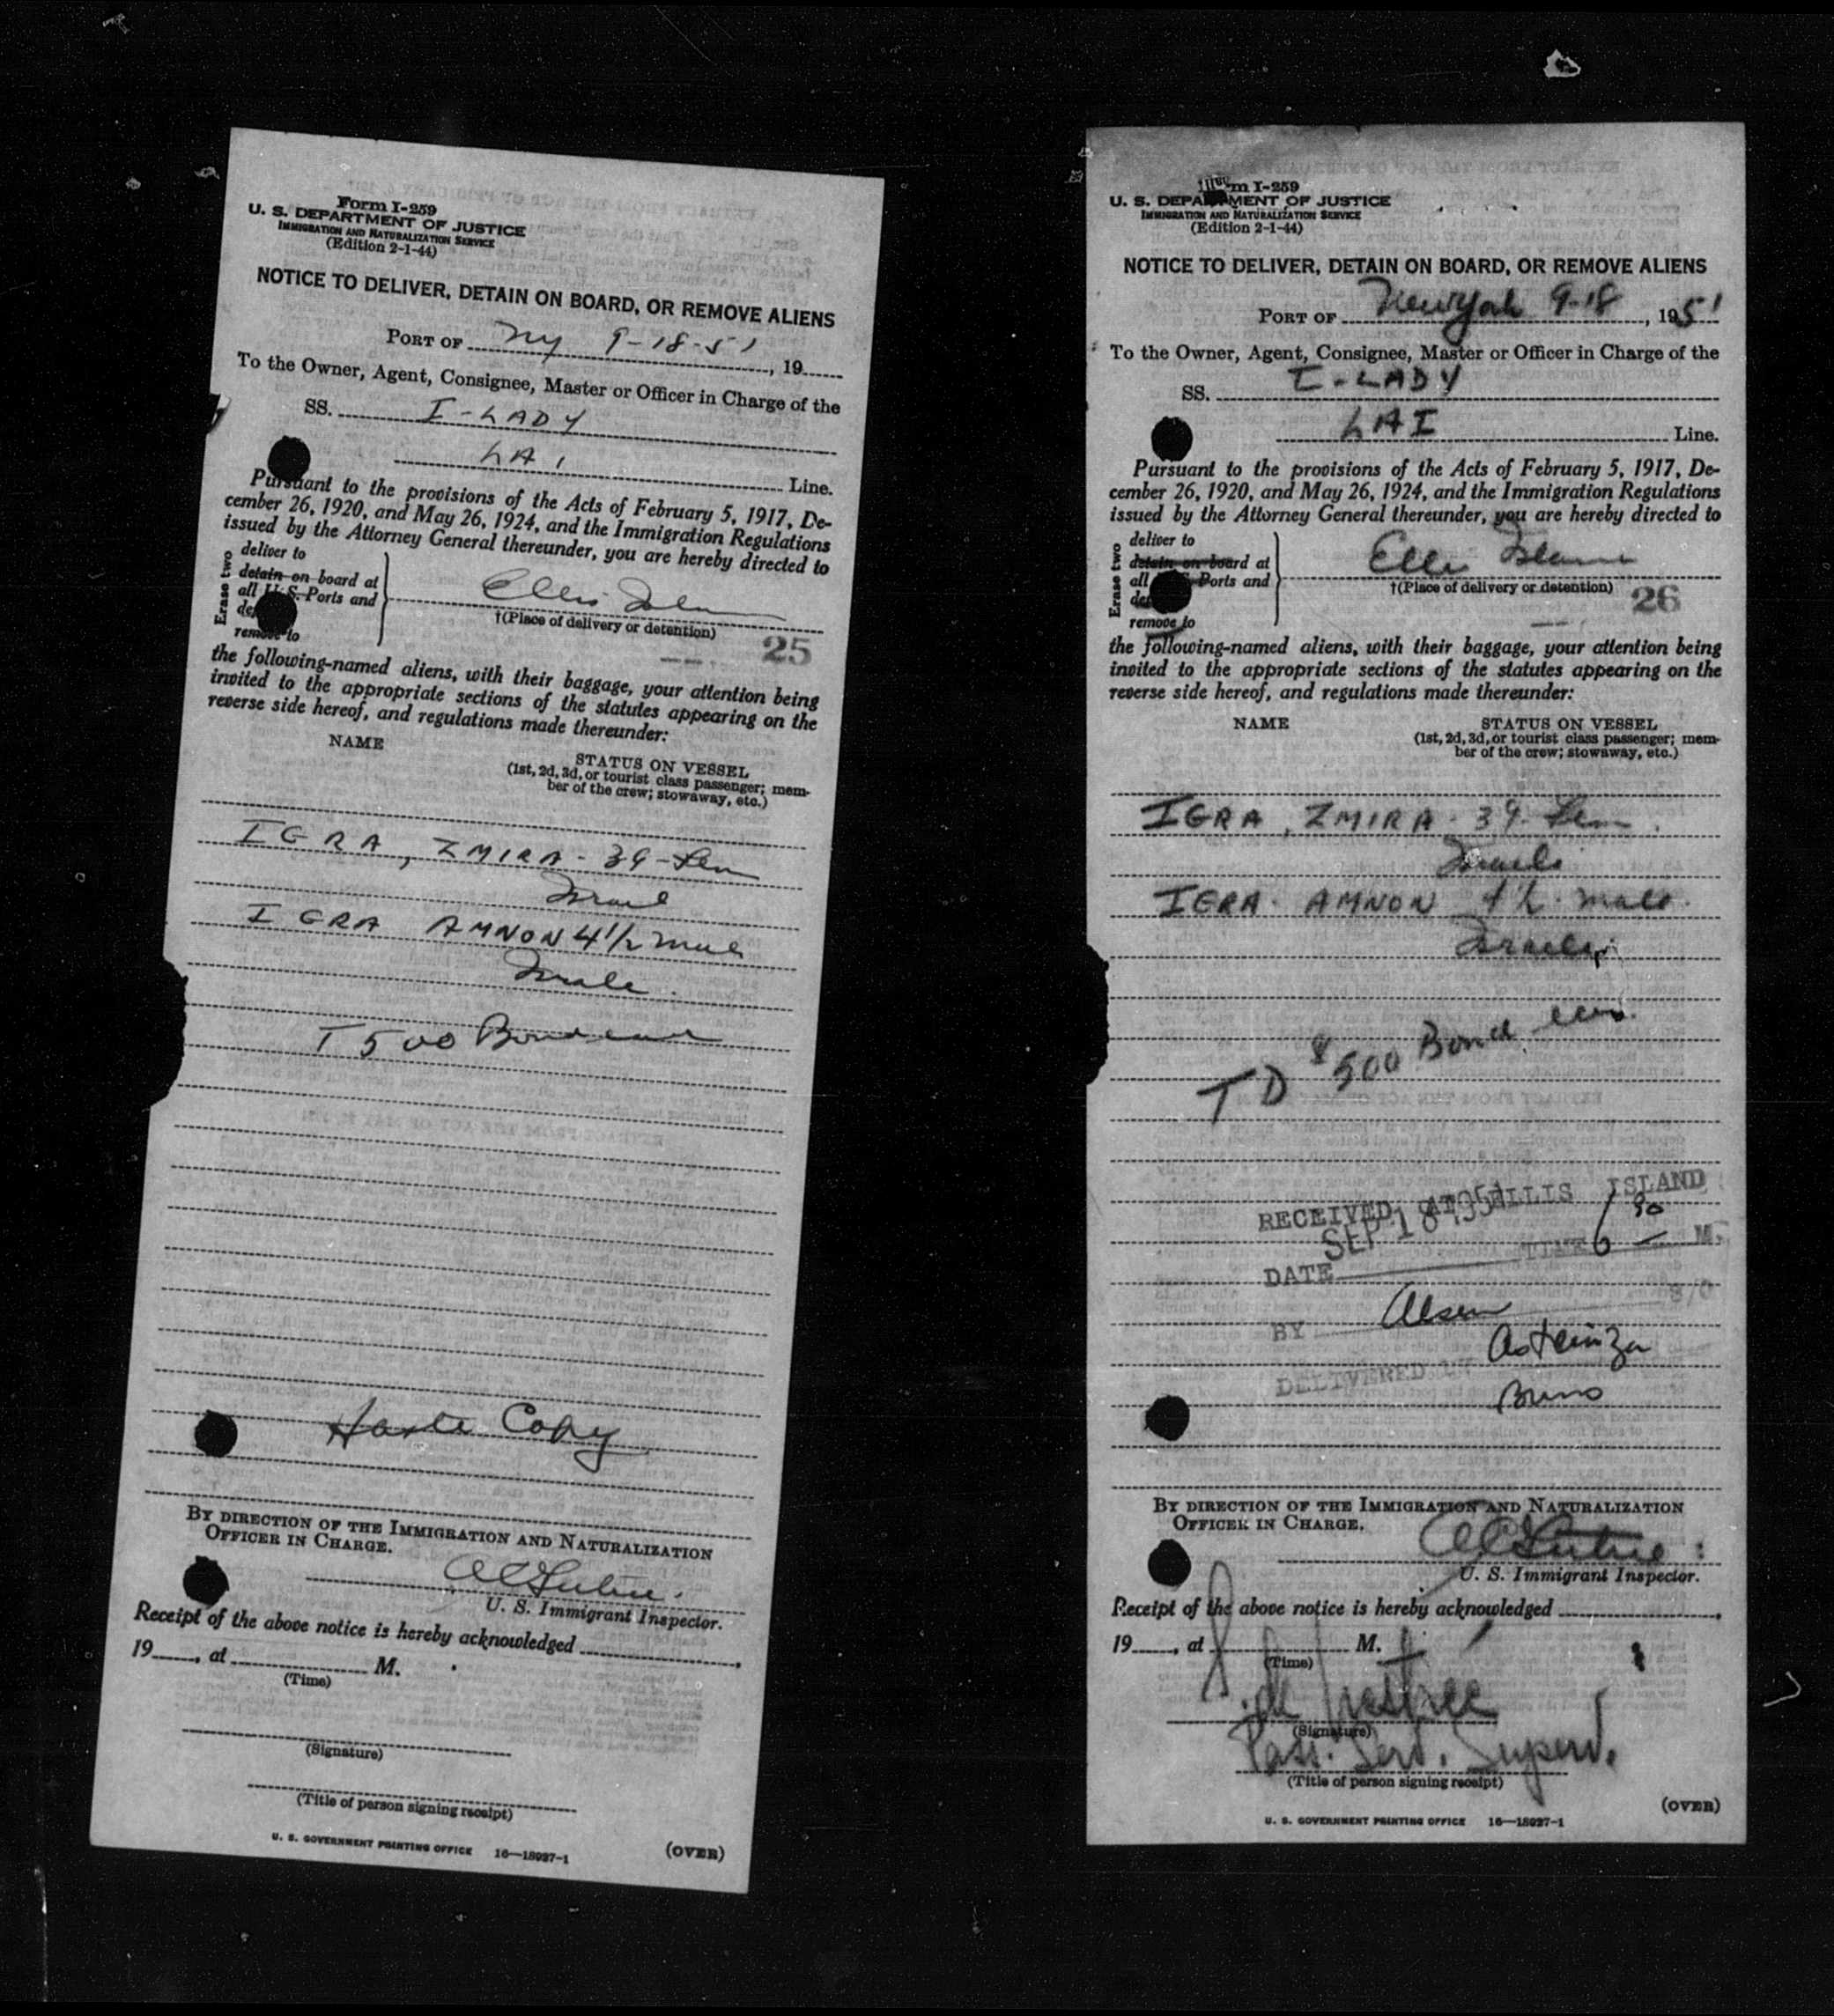 Form I-259
U. S. DEPARTMENT OF JUSTICE
IMMIGRATION AND NATURALIZATION SERVICE
(Edition 2-1-44)
NOTICE TO DELIVER, DETAIN ON BOARD, OR REMOVE ALIENS
PORT OF NY 9-18-51, 19
To the Owner, Agent, Consignee, Master or Officer in Charge of the
SS. I-LADY
LAI Line.
Pursuant to the provisions of the Acts of February 5, 1917, De-
cember 26, 1920, and May 26, 1924, and the Immigration Regulations
issued by the Attorney General thereunder, you are hereby directed to
Erase two
deliver to
detain on board at
all U.S. Ports and
remove to
Ellis Island
†(Place of delivery or detention)
25
the following-named aliens, with their baggage, your attention being
invited to the appropriate sections of the statutes appearing on the
reverse side hereof, and regulations made thereunder:
NAME
STATUS ON VESSEL
(1st, 2d, 3d, or tourist class passenger; mem-
ber of the crew; stowaway, etc.)
IGRA, ZMIRA - 39 - Fem
IGRA AMNON 4 1/2 male
T 500 Bond
Copy
BY DIRECTION OF THE IMMIGRATION AND NATURALIZATION
OFFICER IN CHARGE.
U. S. Immigrant Inspector.
Receipt of the above notice is hereby acknowledged
19, at M.
(Time)
(Signature)
(Title of person signing receipt)
U. S. GOVERNMENT PRINTING OFFICE 16—18927-1
(OVER)
Form I-259
U. S. DEPARTMENT OF JUSTICE
IMMIGRATION AND NATURALIZATION SERVICE
(Edition 2-1-44)
NOTICE TO DELIVER, DETAIN ON BOARD, OR REMOVE ALIENS
PORT OF New York 9-18, 1951
To the Owner, Agent, Consignee, Master or Officer in Charge of the
SS. I-LADY
LAI Line.
Pursuant to the provisions of the Acts of February 5, 1917, De-
cember 26, 1920, and May 26, 1924, and the Immigration Regulations
issued by the Attorney General thereunder, you are hereby directed to
Erase two
deliver to
detain on board at
all U.S. Ports and
remove to
Ellis Island
†(Place of delivery or detention)
26
the following-named aliens, with their baggage, your attention being
invited to the appropriate sections of the statutes appearing on the
reverse side hereof, and regulations made thereunder:
NAME
STATUS ON VESSEL
(1st, 2d, 3d, or tourist class passenger; mem-
ber of the crew; stowaway, etc.)
IGRA, ZMIRA - 39 - Fem.
Israeli
IGRA - AMNON 4½ - male.
Israeli
TD $500 Bond
RECEIVED AT ELLIS ISLAND
SEP 18 1951
DATE TIME 6 30 M.
BY Olsen
DELIVERED BY
Bruno
BY DIRECTION OF THE IMMIGRATION AND NATURALIZATION
OFFICER IN CHARGE.
U. S. Immigrant Inspector.
Receipt of the above notice is hereby acknowledged
19, at M.
(Time)
(Signature)
Pass. Serv. Superv.
(Title of person signing receipt)
(OVER)
U. S. GOVERNMENT PRINTING OFFICE 16—18927-1